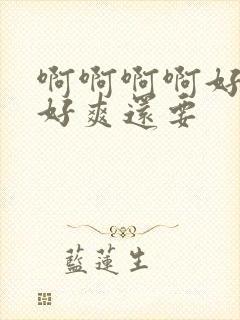 啊啊啊啊好
好爽還要
藍蓮生